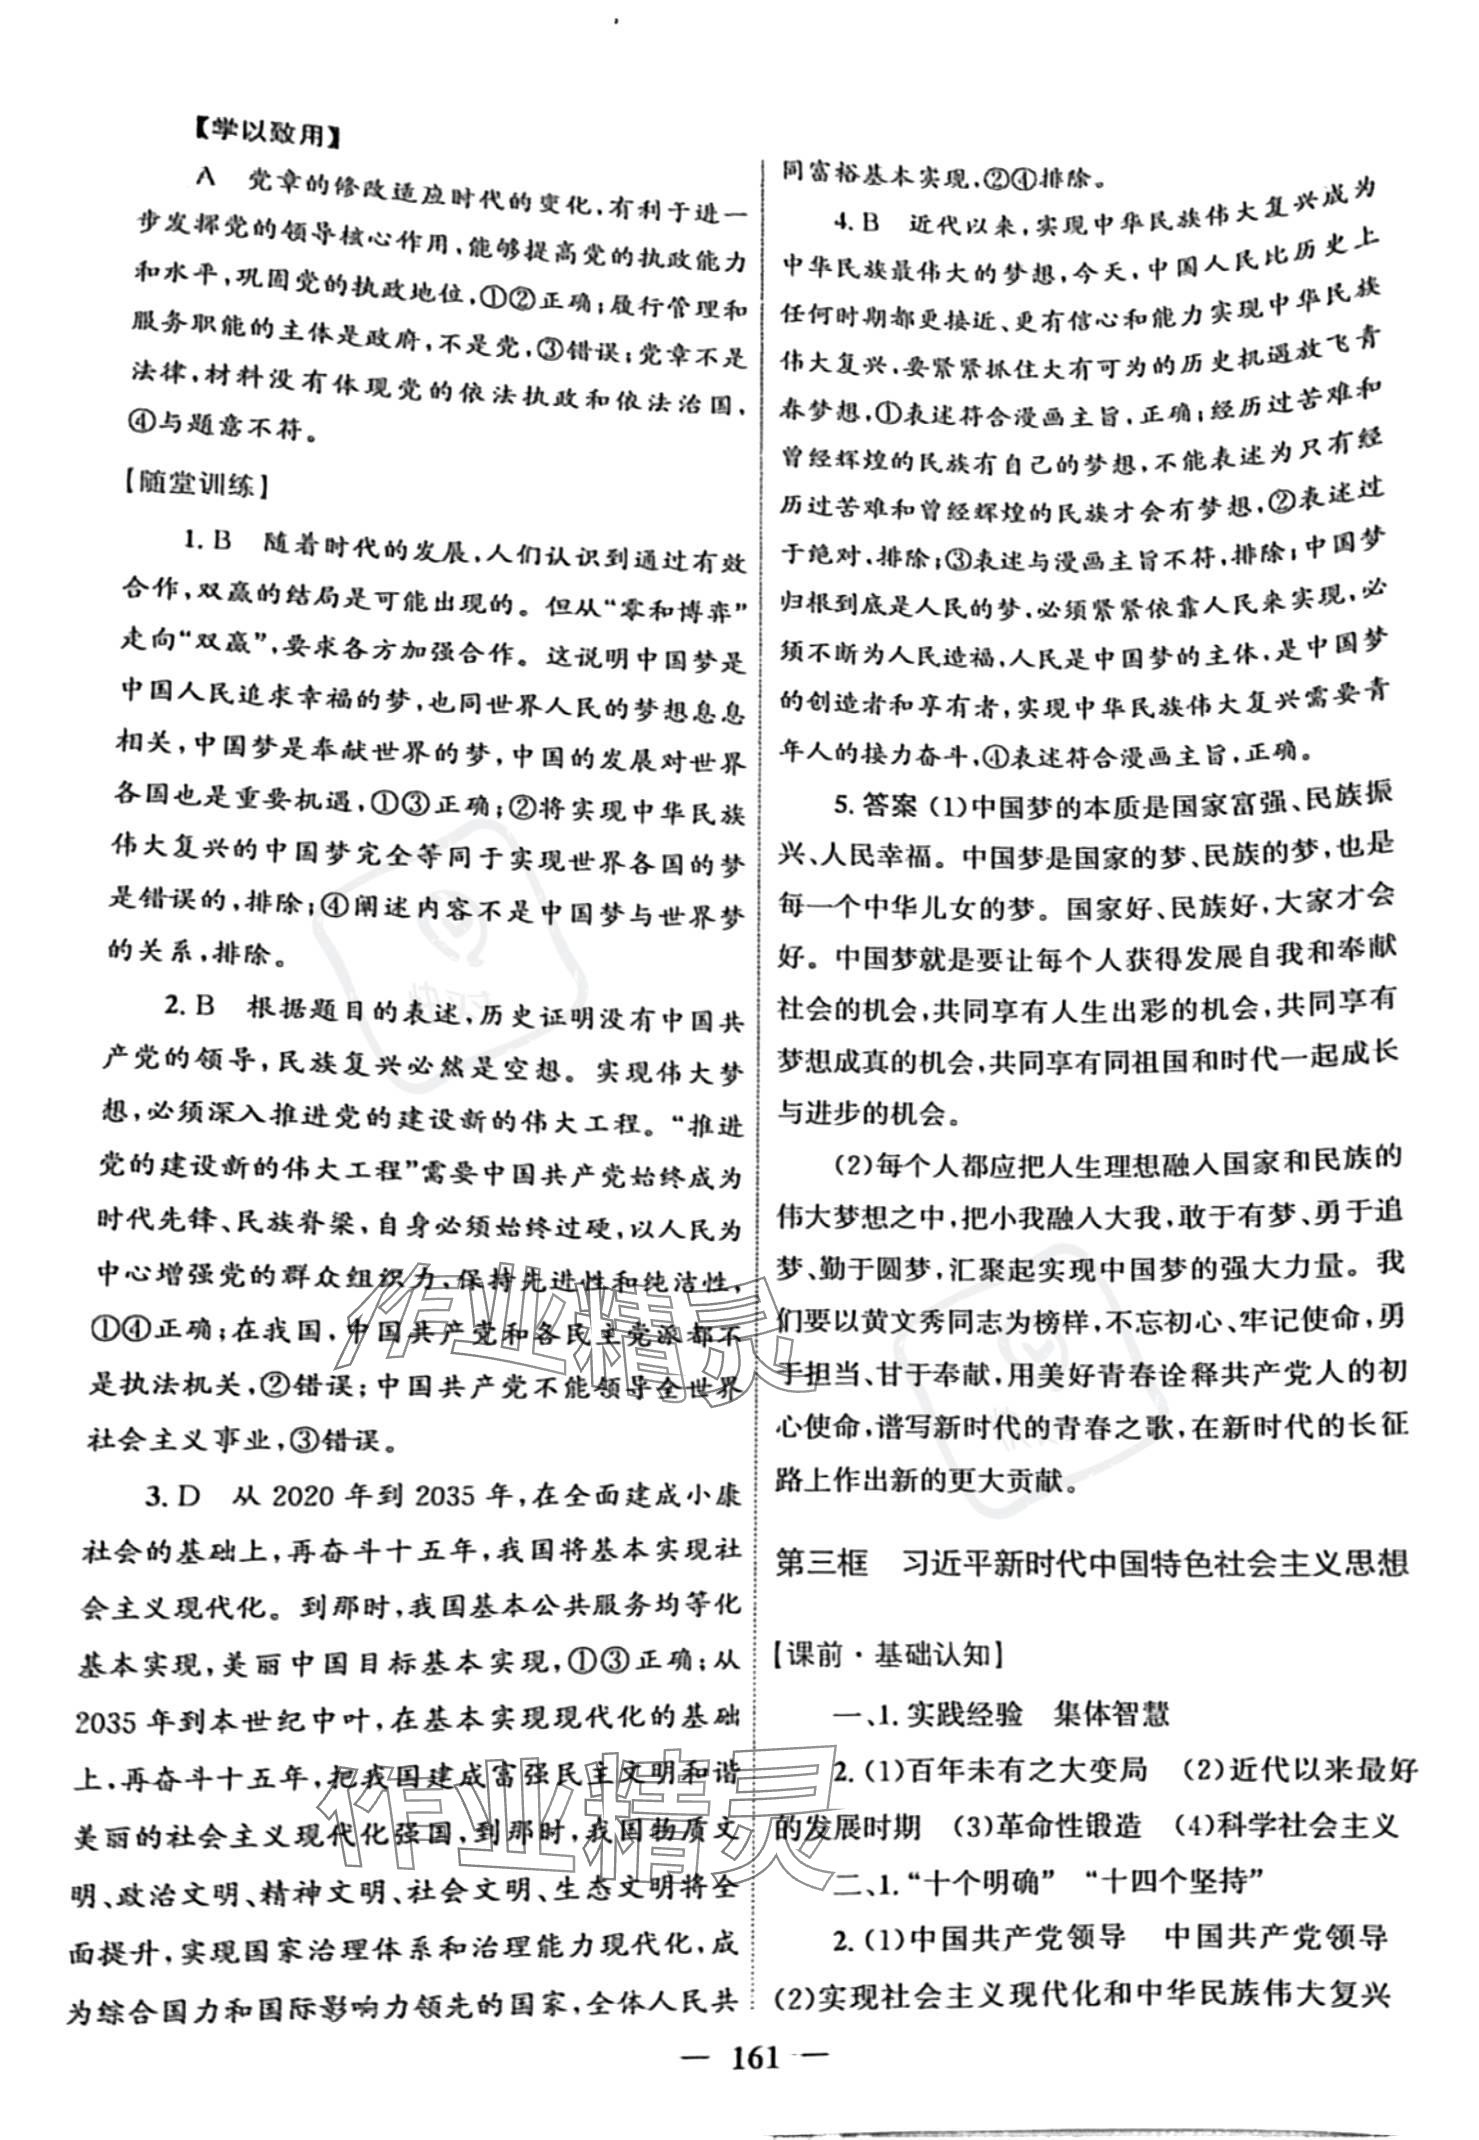 【学以致用】
A 党章的修改适应时代的变化,有利于进一
步发挥党的领导核心作用,能够提高党的执政能力
和水平,巩固党的执政地位,①②正确;履行管理和
服务职能的主体是政府,不是党,③错误;党章不是
法律,材料没有体现党的依法执政和依法治国,
④与题意不符。
【随堂训练】
1. B 随着时代的发展,人们认识到通过有效
合作,双赢的结局是可能出现的。但从“零和博弈”
走向“双赢”,要求各方加强合作。这说明中国梦是
中国人民追求幸福的梦,也同世界人民的梦想息息
相关,中国梦是奉献世界的梦,中国的发展对世界
各国也是重要机遇,①③正确;②将实现中华民族
伟大复兴的中国梦完全等同于实现世界各国的梦
是错误的,排除;④阐述内容不是中国梦与世界梦
的关系,排除。
2. B 根据题目的表述,历史证明没有中国共
产党的领导,民族复兴必然是空想。实现伟大梦
想,必须深入推进党的建设新的伟大工程。“推进
党的建设新的伟大工程”需要中国共产党始终成为
时代先锋、民族脊梁,自身必须始终过硬,以人民为
中心增强党的群众组织力,保持先进性和纯洁性,
①④正确;在我国,中国共产党和各民主党派都不
是执法机关,②错误;中国共产党不能领导全世界
社会主义事业,③错误。
3. D 从 2020 年到 2035 年,在全面建成小康
社会的基础上,再奋斗十五年,我国将基本实现社
会主义现代化。到那时,我国基本公共服务均等化
基本实现,美丽中国目标基本实现,①③正确;从
2035 年到本世纪中叶,在基本实现现代化的基础
上,再奋斗十五年,把我国建成富强民主文明和谐
美丽的社会主义现代化强国,到那时,我国物质文
明、政治文明、精神文明、社会文明、生态文明将全
面提升,实现国家治理体系和治理能力现代化,成
为综合国力和国际影响力领先的国家,全体人民共
同富裕基本实现,②④排除。
4. B 近代以来,实现中华民族伟大复兴成为
中华民族最伟大的梦想,今天,中国人民比历史上
任何时期都更接近、更有信心和能力实现中华民族
伟大复兴,要紧紧抓住大有可为的历史机遇放飞青
春梦想,①表述符合漫画主旨,正确;经历过苦难和
曾经辉煌的民族有自己的梦想,不能表述为只有经
历过苦难和曾经辉煌的民族才会有梦想,②表述过
于绝对,排除;③表述与漫画主旨不符,排除;中国梦
归根到底是人民的梦,必须紧紧依靠人民来实现,必
须不断为人民造福,人民是中国梦的主体,是中国梦
的创造者和享有者,实现中华民族伟大复兴需要青
年人的接力奋斗,④表述符合漫画主旨,正确。
5. 答案 (1)中国梦的本质是国家富强、民族振
兴、人民幸福。中国梦是国家的梦、民族的梦,也是
每一个中华儿女的梦。国家好、民族好,大家才会
好。中国梦就是要让每个人获得发展自我和奉献
社会的机会,共同享有人生出彩的机会,共同享有
梦想成真的机会,共同享有同祖国和时代一起成长
与进步的机会。
(2)每个人都应把人生理想融入国家和民族的
伟大梦想之中,把小我融入大我,敢于有梦、勇于追
梦、勤于圆梦,汇聚起实现中国梦的强大力量。我
们要以黄文秀同志为榜样,不忘初心、牢记使命,勇
于担当、甘于奉献,用美好青春诠释共产党人的初
心使命,谱写新时代的青春之歌,在新时代的长征
路上作出新的更大贡献。
第三框 习近平新时代中国特色社会主义思想
【课前·基础认知】
一、1. 实践经验 集体智慧
2. (1)百年未有之大变局 (2)近代以来最好
的发展时期 (3)革命性锻造 (4)科学社会主义
二、1. “十个明确” “十四个坚持”
2. (1)中国共产党领导 中国共产党领导
(2)实现社会主义现代化和中华民族伟大复兴
— 161 —
作业精灵
作业精灵